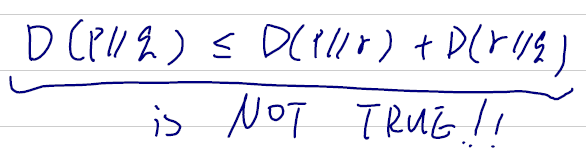 D(P||q) ≤ D(P||r) + D(r||q)
is NOT TRUE!!